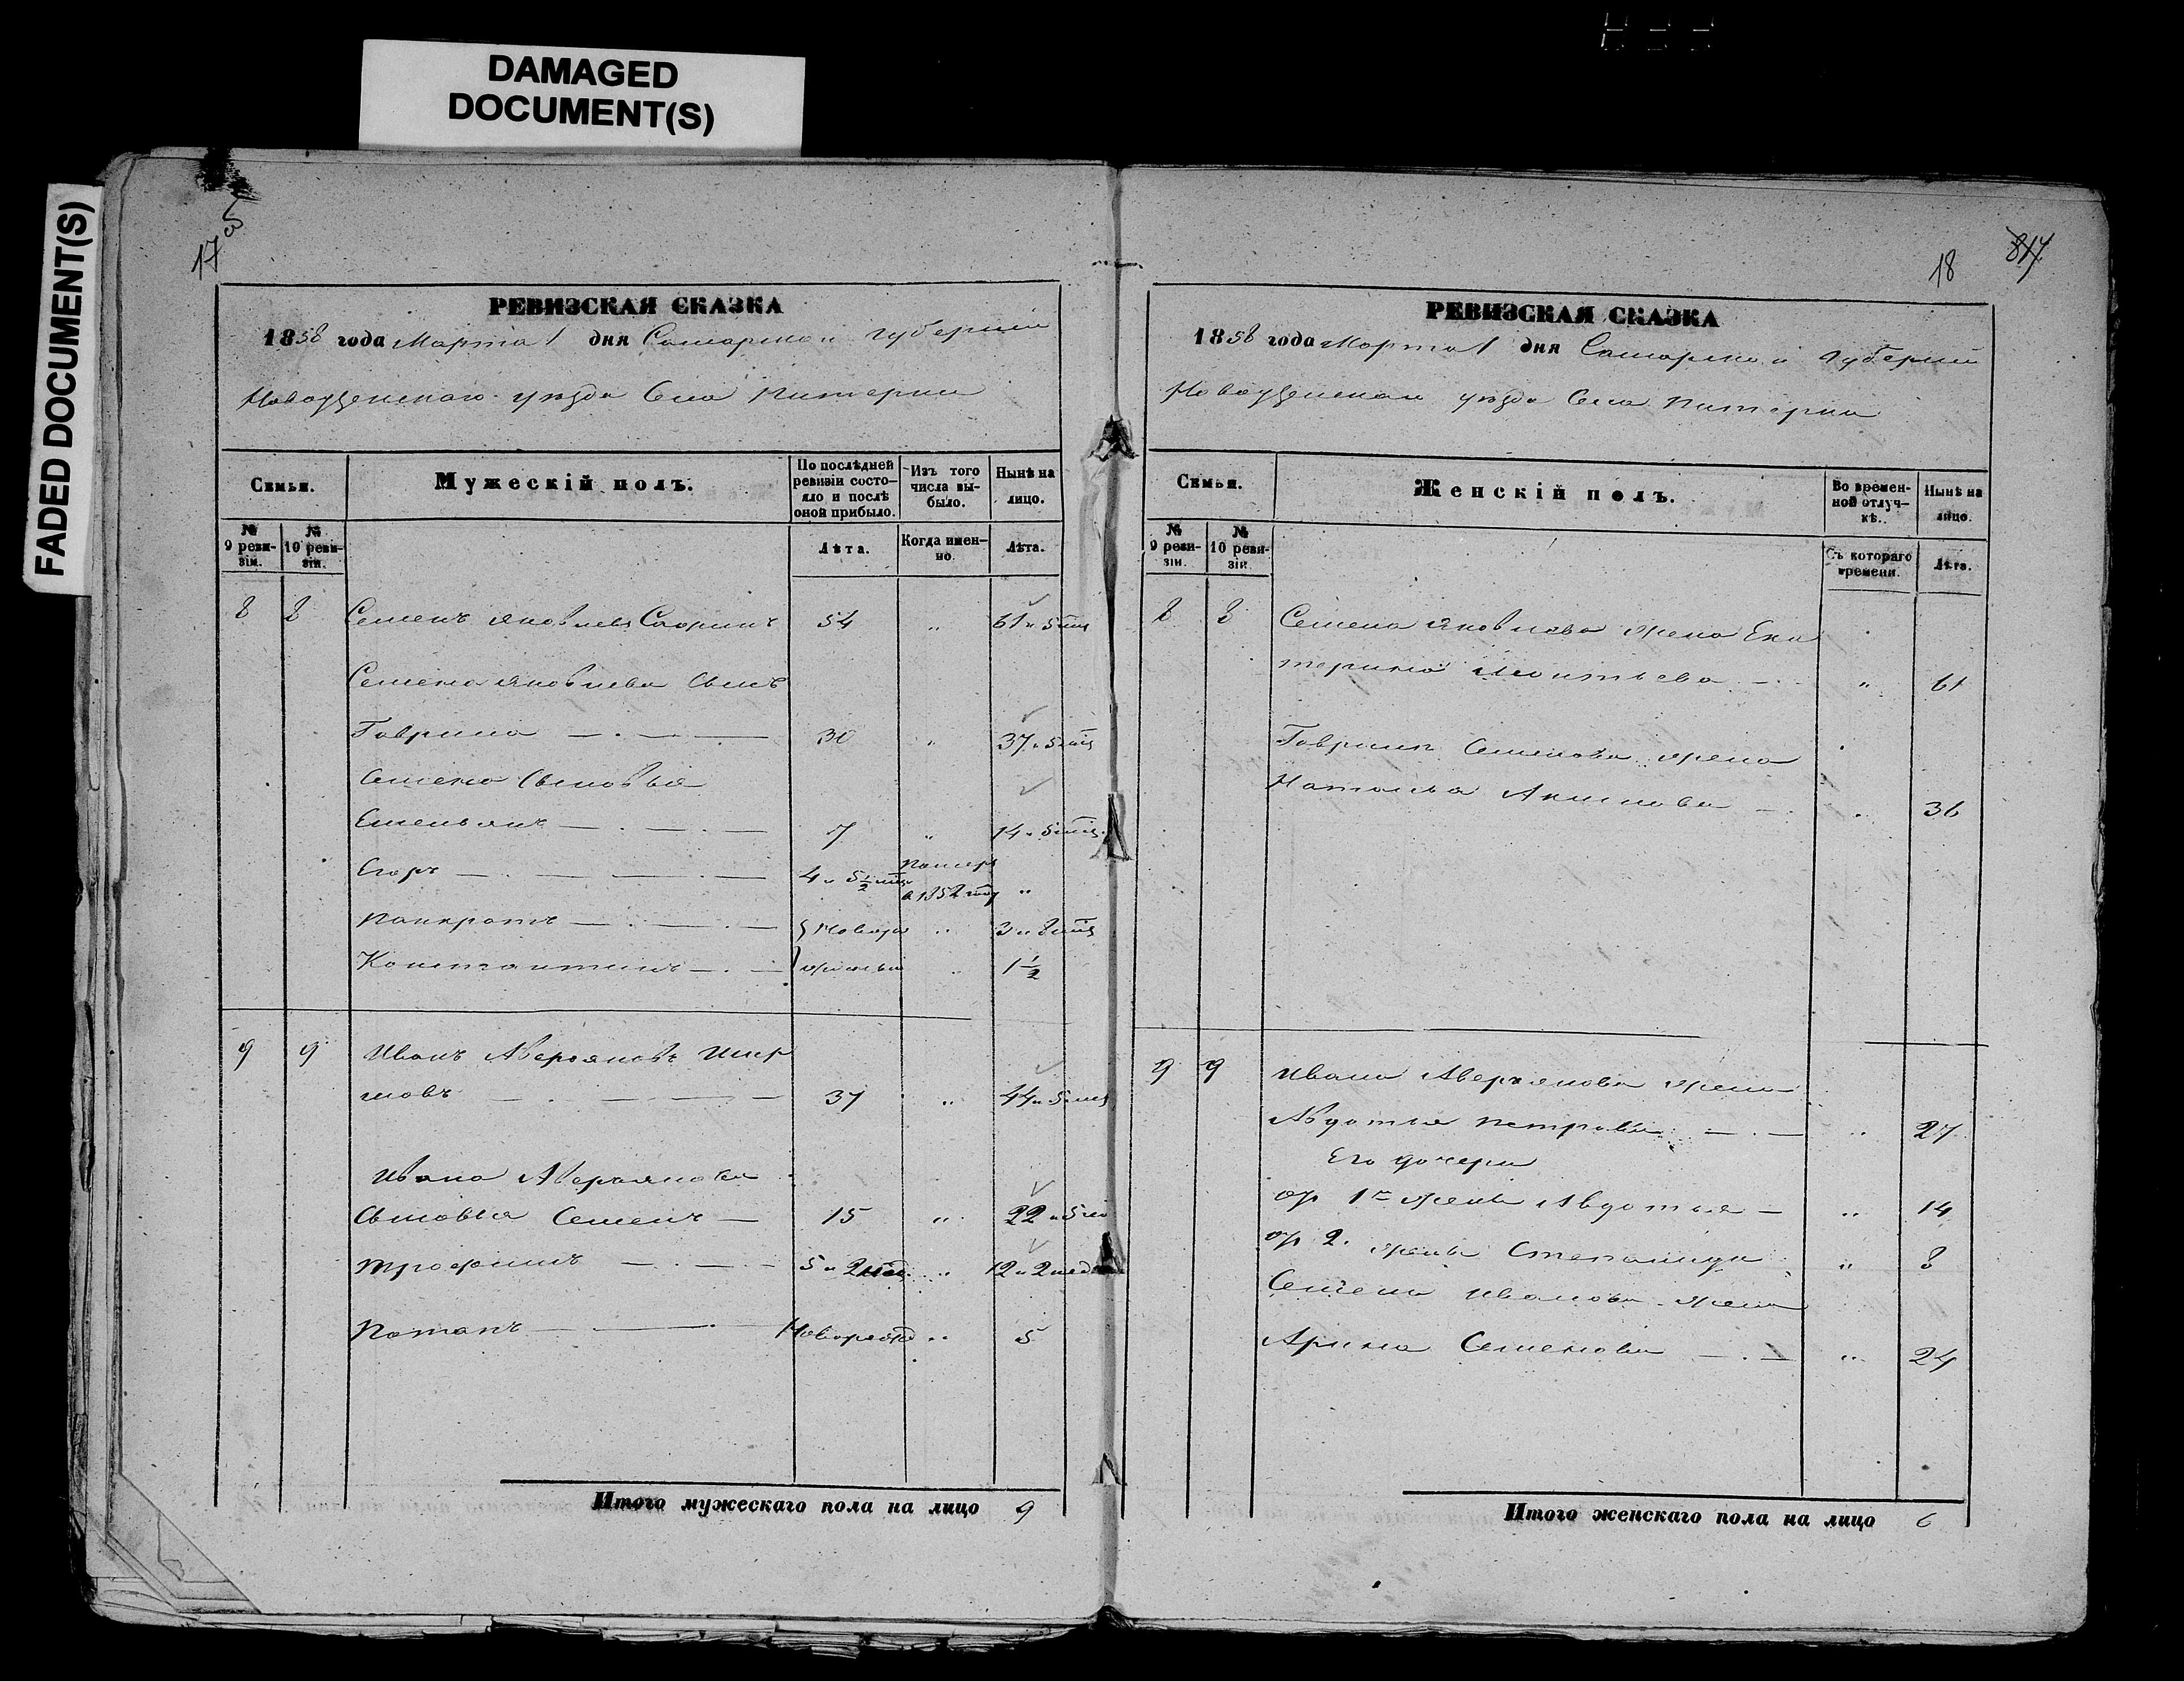 DAMAGED
DOCUMENT(S)
FADED DOCUMENT(S)
17
РЕВИЗСКАЯ СКАЗКА
1858 года Марта 1 дня Самарской губернии
Новоузенскаго уѣзда Села Питерки
Семьи.
Мужескій полъ.
По послѣдней ревизіи состояло и послѣ оной прибыло.
Изъ того числа выбыло.
Нынѣ на лицо.
№ 9 ревизіи.
№ 10 ревизіи.
Лѣта.
Когда именно.
Лѣта.
8 8 Семенъ Яковлевъ 54 „ 61 и 5 мец
Семена Яковлева Сынъ
Гаврила 30 „ 37 и 5 мец
Семена Сыновья
Емельянъ 7 „ 14 и 5 мец
Егоръ 4 и 5½ мец Померъ в 1852 году „
Панкратъ Новоро „ 3 и 8 мец
Константинъ жденный „ 1½
9 9 Иванъ Аверьяновъ
мовъ 37 „ 44 и 5 мец
Ивана Аверьянова
Сыновья Семенъ 15 „ 22 и 5 ме
Трофимъ 5 и 2 нед. „ 12 и 2 нед
Потапъ Новорожд „ 5
Итого мужескаго пола на лицо 9
18
РЕВИЗСКАЯ СКАЗКА
1858 года Марта 1 дня Самарской Губерніи
Новоузенскаго уѣзда Села Питерки
Семьи.
Женскій полъ.
Во временной отлучкѣ.
Нынѣ на лицо.
№ 9 ревизіи.
№ 10 ревизіи.
Съ котораго времени.
Лѣта.
8 8 Семена Яковлева жена Ека
терина Леонтьева „ 61
Гаврилы Семенова жена
Наталья Акимова „ 36
9 9 Ивана Аверьянова жена
Авдотья Петрова „ 27
Его дочери
от 1й жены Авдотья „ 14
от 2. жены Степанида „ 8
Семена Иванова жена
Арина Семенова „ 24
Итого женскаго пола на лицо 6